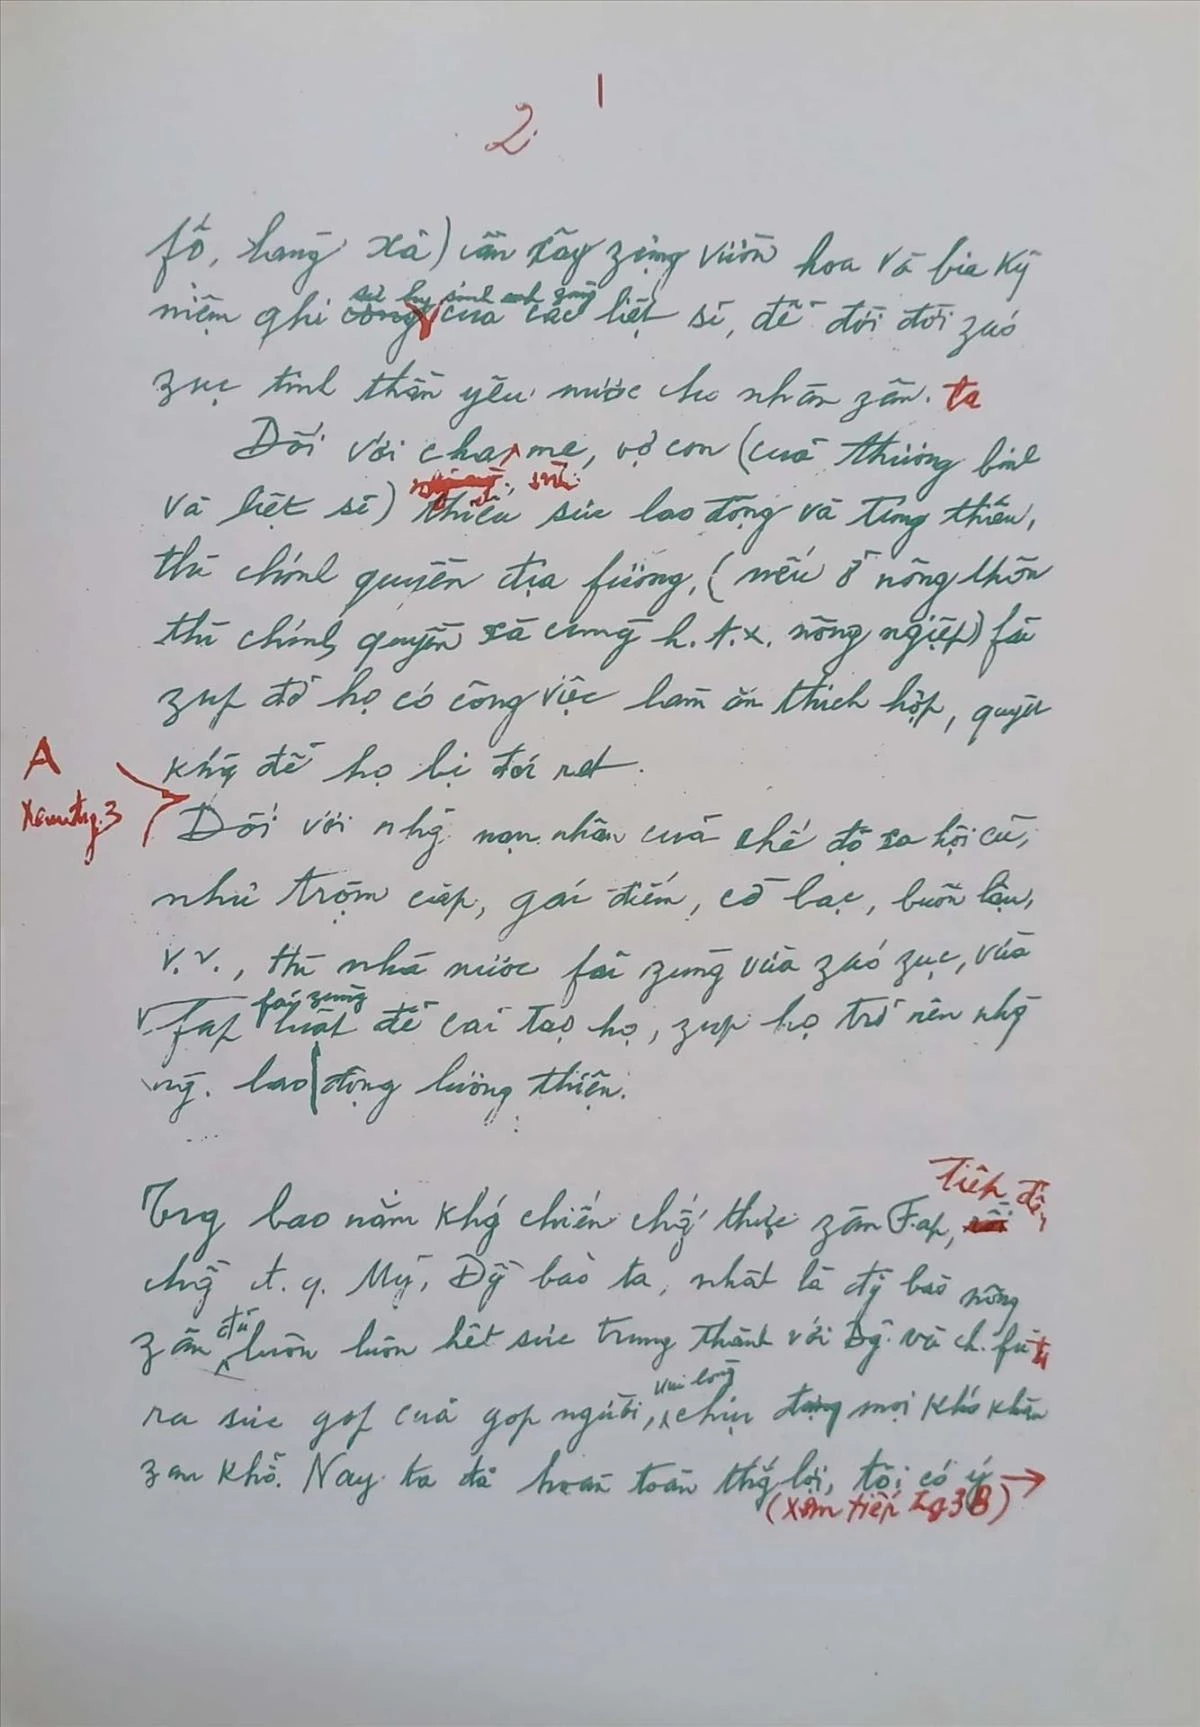 1
2.
fố, làng xã) cần xây zựng vườn hoa và bia kỷ
sự hy sinh anh zũng
niệm ghi công của các liệt sĩ, để đời đời záo
zục tinh thần yêu nước cho nhân zân. ta
Đối với cha, mẹ, vợ con (của thương binh
và liệt sĩ) thiếu sức lao động và túng thiếu,
thì chính quyền địa fương, (nếu ở nông thôn
thì chính quyền xã cùng h.t.x. nông ngiệp) fải
zúp đỡ họ có công việc làm ăn thích hợp, quyết
A
khg để họ bị đói rét.
Xem trg. 3
Đối với nhg nạn nhân của chế độ xã hội cũ,
như trộm cắp, gái điếm, cờ bạc, buôn lậu,
v.v., thì nhà nước fải zùng vừa záo zục, vừa
fải zùng
fáp luật để cải tạo họ, zúp họ trở nên nhg
ng. lao động lương thiện.
Trg bao năm khg chiến chg thực zân Fáp, tiếp đến
chg đ. q. Mỹ, Đg bào ta, nhất là đg bào nông
zân đã luôn luôn hết sức trung thành với Đg. và ch. fủ ta
ra sức góp của góp người, vui lòng chịu đựng mọi khó khăn
zan khổ. Nay ta đã hoàn toàn thg lợi, tôi có ý →
(Xem tiếp Tg 3B)